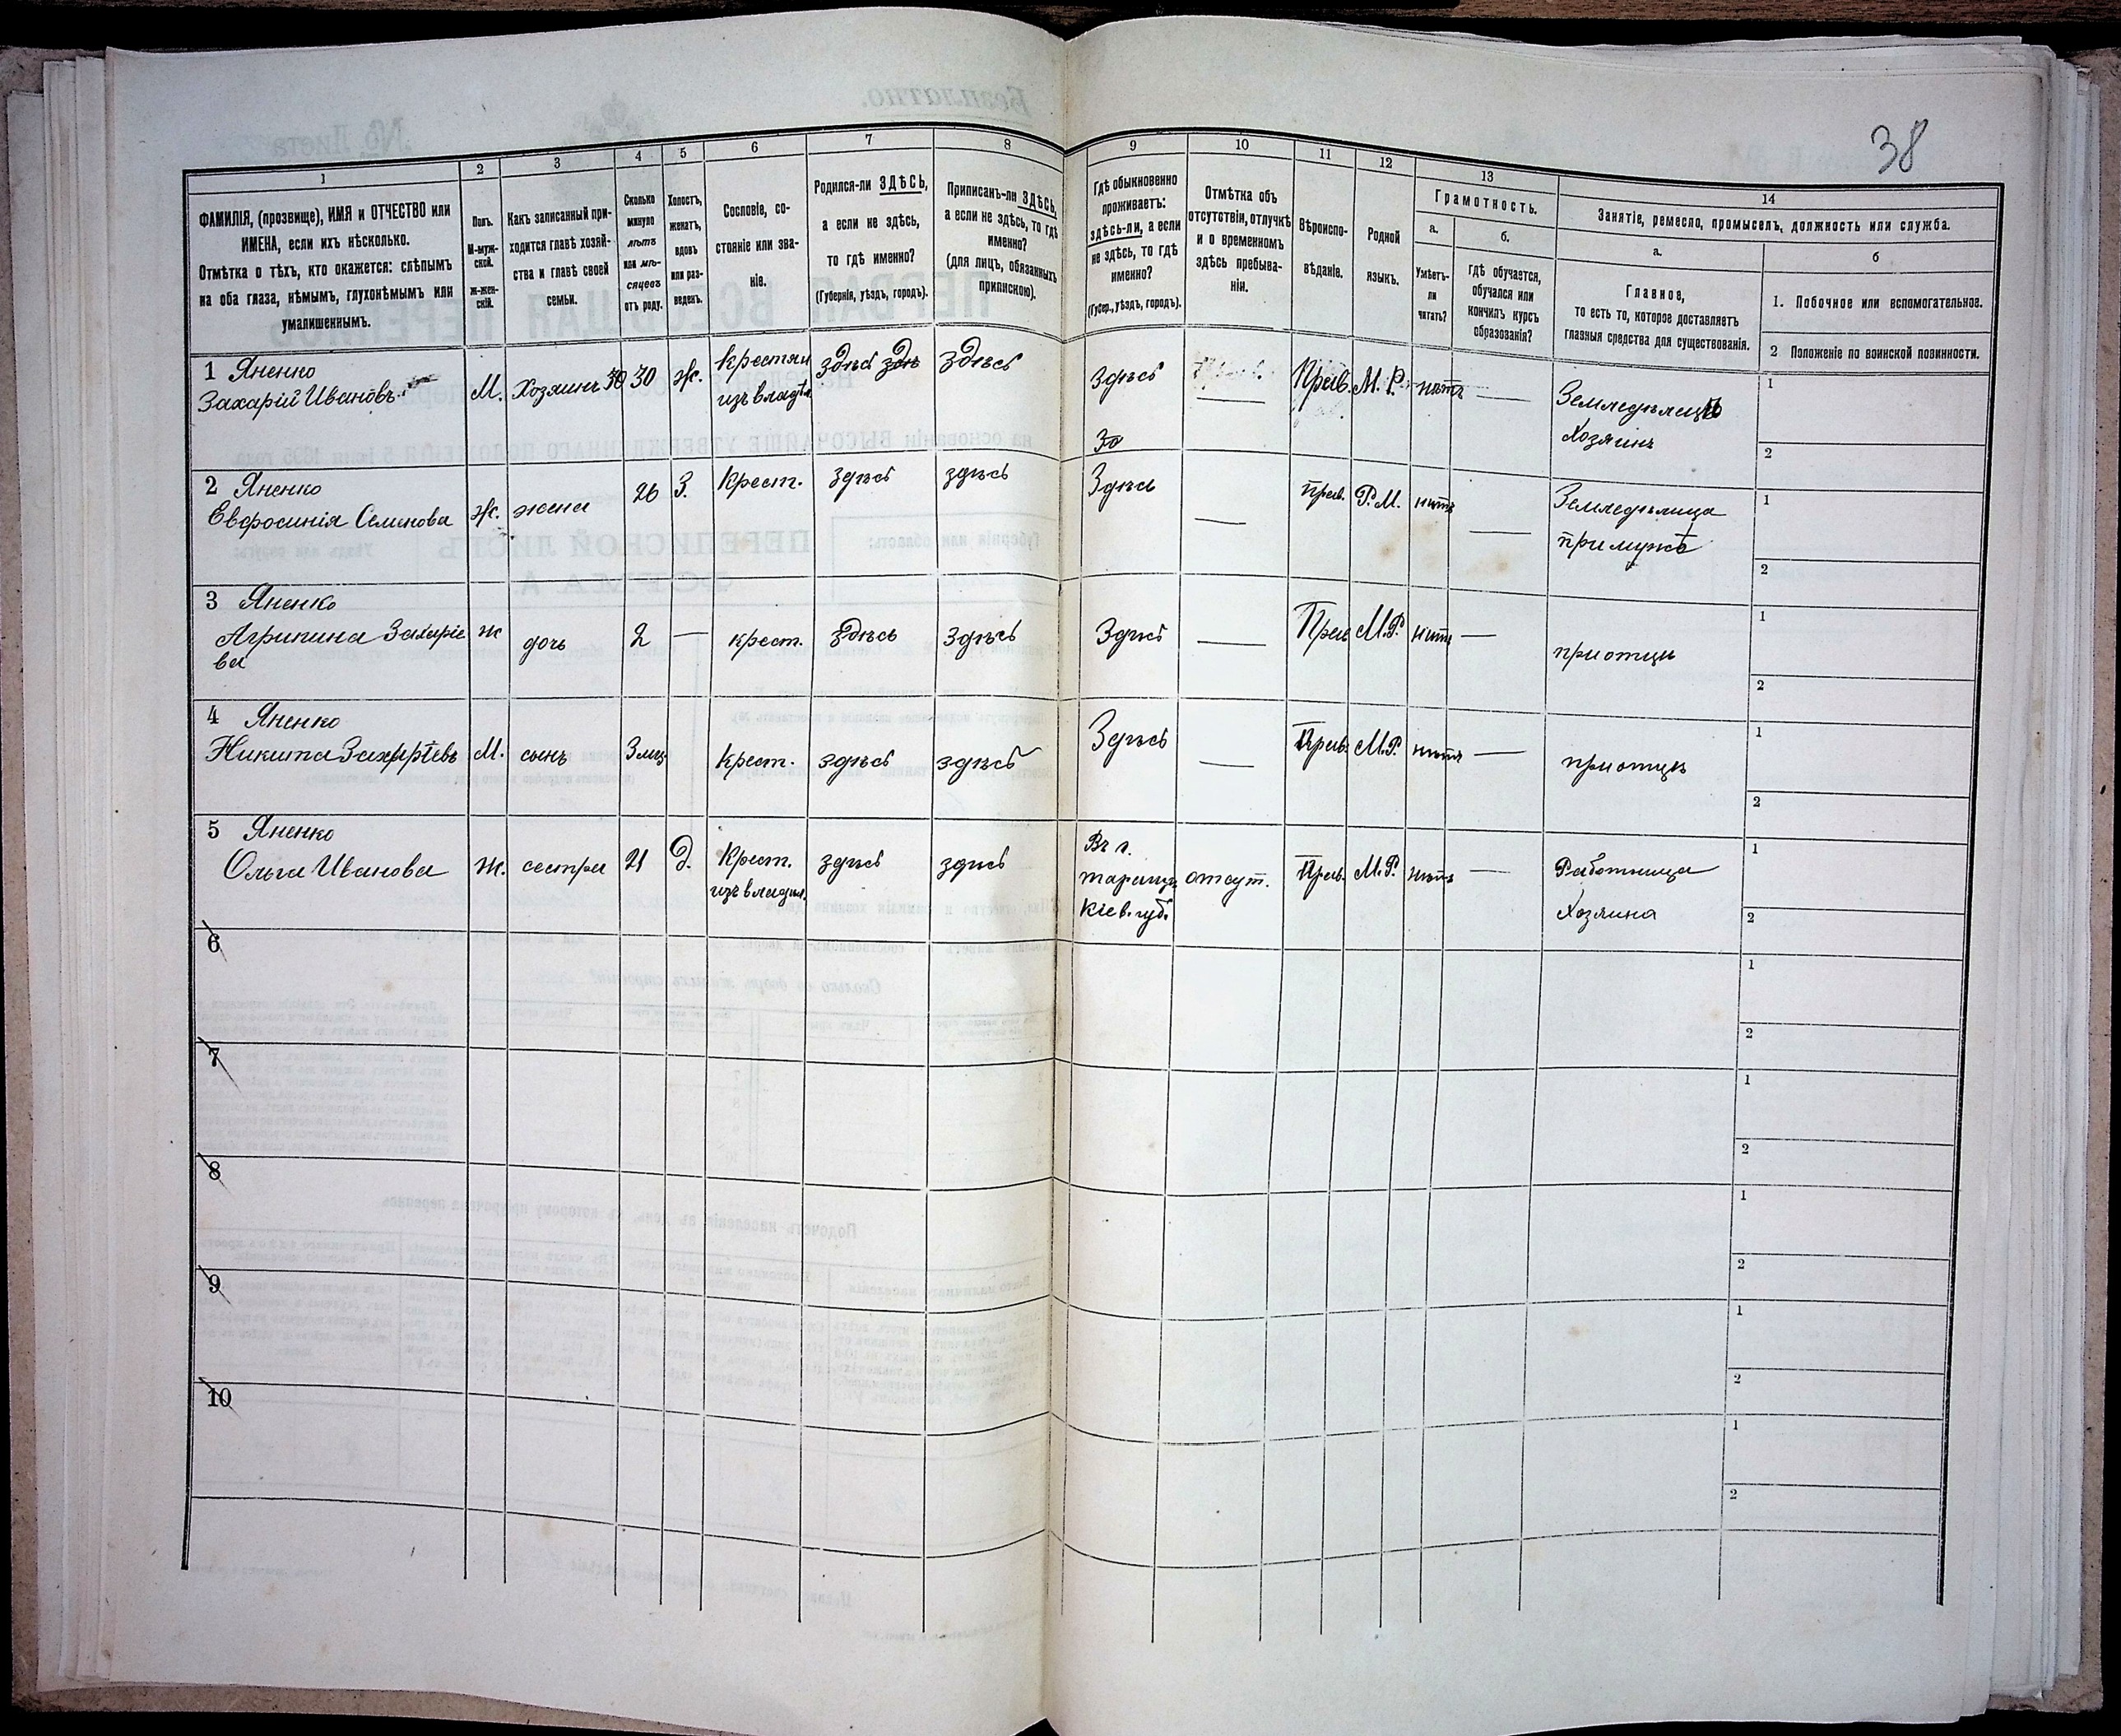 38
1
2
3
4
5
6
7
8
9
10
11
12
13
14
ФАМИЛІЯ, (прозвище), ИМЯ и ОТЧЕСТВО или
ИМЕНА, если ихъ нѣсколько.
Отмѣтка о тѣхъ, кто окажется: слѣпымъ
на оба глаза, нѣмымъ, глухонѣмымъ или
умалишеннымъ.
Полъ.
М-муж-
ской.
ж-жен-
скій.
Какъ записанный при-
ходится главѣ хозяй-
ства и главѣ своей
семьи.
Сколько
минуло
лѣтъ
или мѣ-
сяцевъ
отъ роду.
Холостъ,
женатъ,
вдовъ
или раз-
веденъ.
Сословіе, со-
стояніе или зва-
ніе.
Родился-ли ЗДѢСЬ,
а если не здѣсь,
то гдѣ именно?
(Губернія, уѣздъ, городъ).
Приписанъ-ли ЗДѢСЬ,
а если не здѣсь, то гдѣ
именно?
(для лицъ, обязанныхъ
припискою).
Гдѣ обыкновенно
проживаетъ:
здѣсь-ли, а если
не здѣсь, то гдѣ
именно?
(Губер., уѣздъ, городъ).
Отмѣтка объ
отсутствіи, отлучкѣ
и о временномъ
здѣсь пребыва-
ніи.
Вѣроиспо-
вѣданіе.
Родной
языкъ.
Грамотность.
а.
Умѣетъ-
ли
читать?
б.
гдѣ обучается,
обучался или
кончилъ курсъ
образованія?
Занятіе, ремесло, промыселъ, должность или служба.
а.
Главное,
то есть то, которое доставляетъ
главныя средства для существованія.
б
1. Побочное или вспомогательное.
2 Положеніе по воинской повинности.
1 Яненко
Захарій Ивановъ
М.
Хозяинъ 30
30
ж.
крестян
изъ владѣл
здѣсь здѣ
здѣсь
Здѣсь
Зд
Прав.
М. Р.
нѣтъ
Земледѣлецъ
Хозяинъ
1
2
2 Яненко
Евфросинія Семенова
ж.
жена
26
З.
Крест.
здѣсь
здѣсь
Здѣсь
прав.
Р. М.
нѣтъ
Земледѣлица
при мужѣ
1
2
3 Яненко
Агрипина Захаріе
ва
ж
дочь
2
крест.
здѣсь
Здѣсь
Здѣсь
Прав
М.Р.
нѣтъ
при отцѣ
1
2
4 Яненко
Никита Захаріевъ
М.
сынъ
3 мц.
крест.
здѣсь
здѣсь
Здѣсь
Прав.
М.Р.
нѣтъ
при отцѣ
1
2
5 Яненко
Ольга Иванова
Ж.
сестра
21
Д.
Крест.
изъ владѣл.
здѣсь
здѣсь
Въ г.
Кіев. губ.
отсут.
Прав.
М.Р.
нѣтъ
Работница
Хозяина
1
2
6
1
2
7
1
2
8
1
2
9
1
2
10
1
2